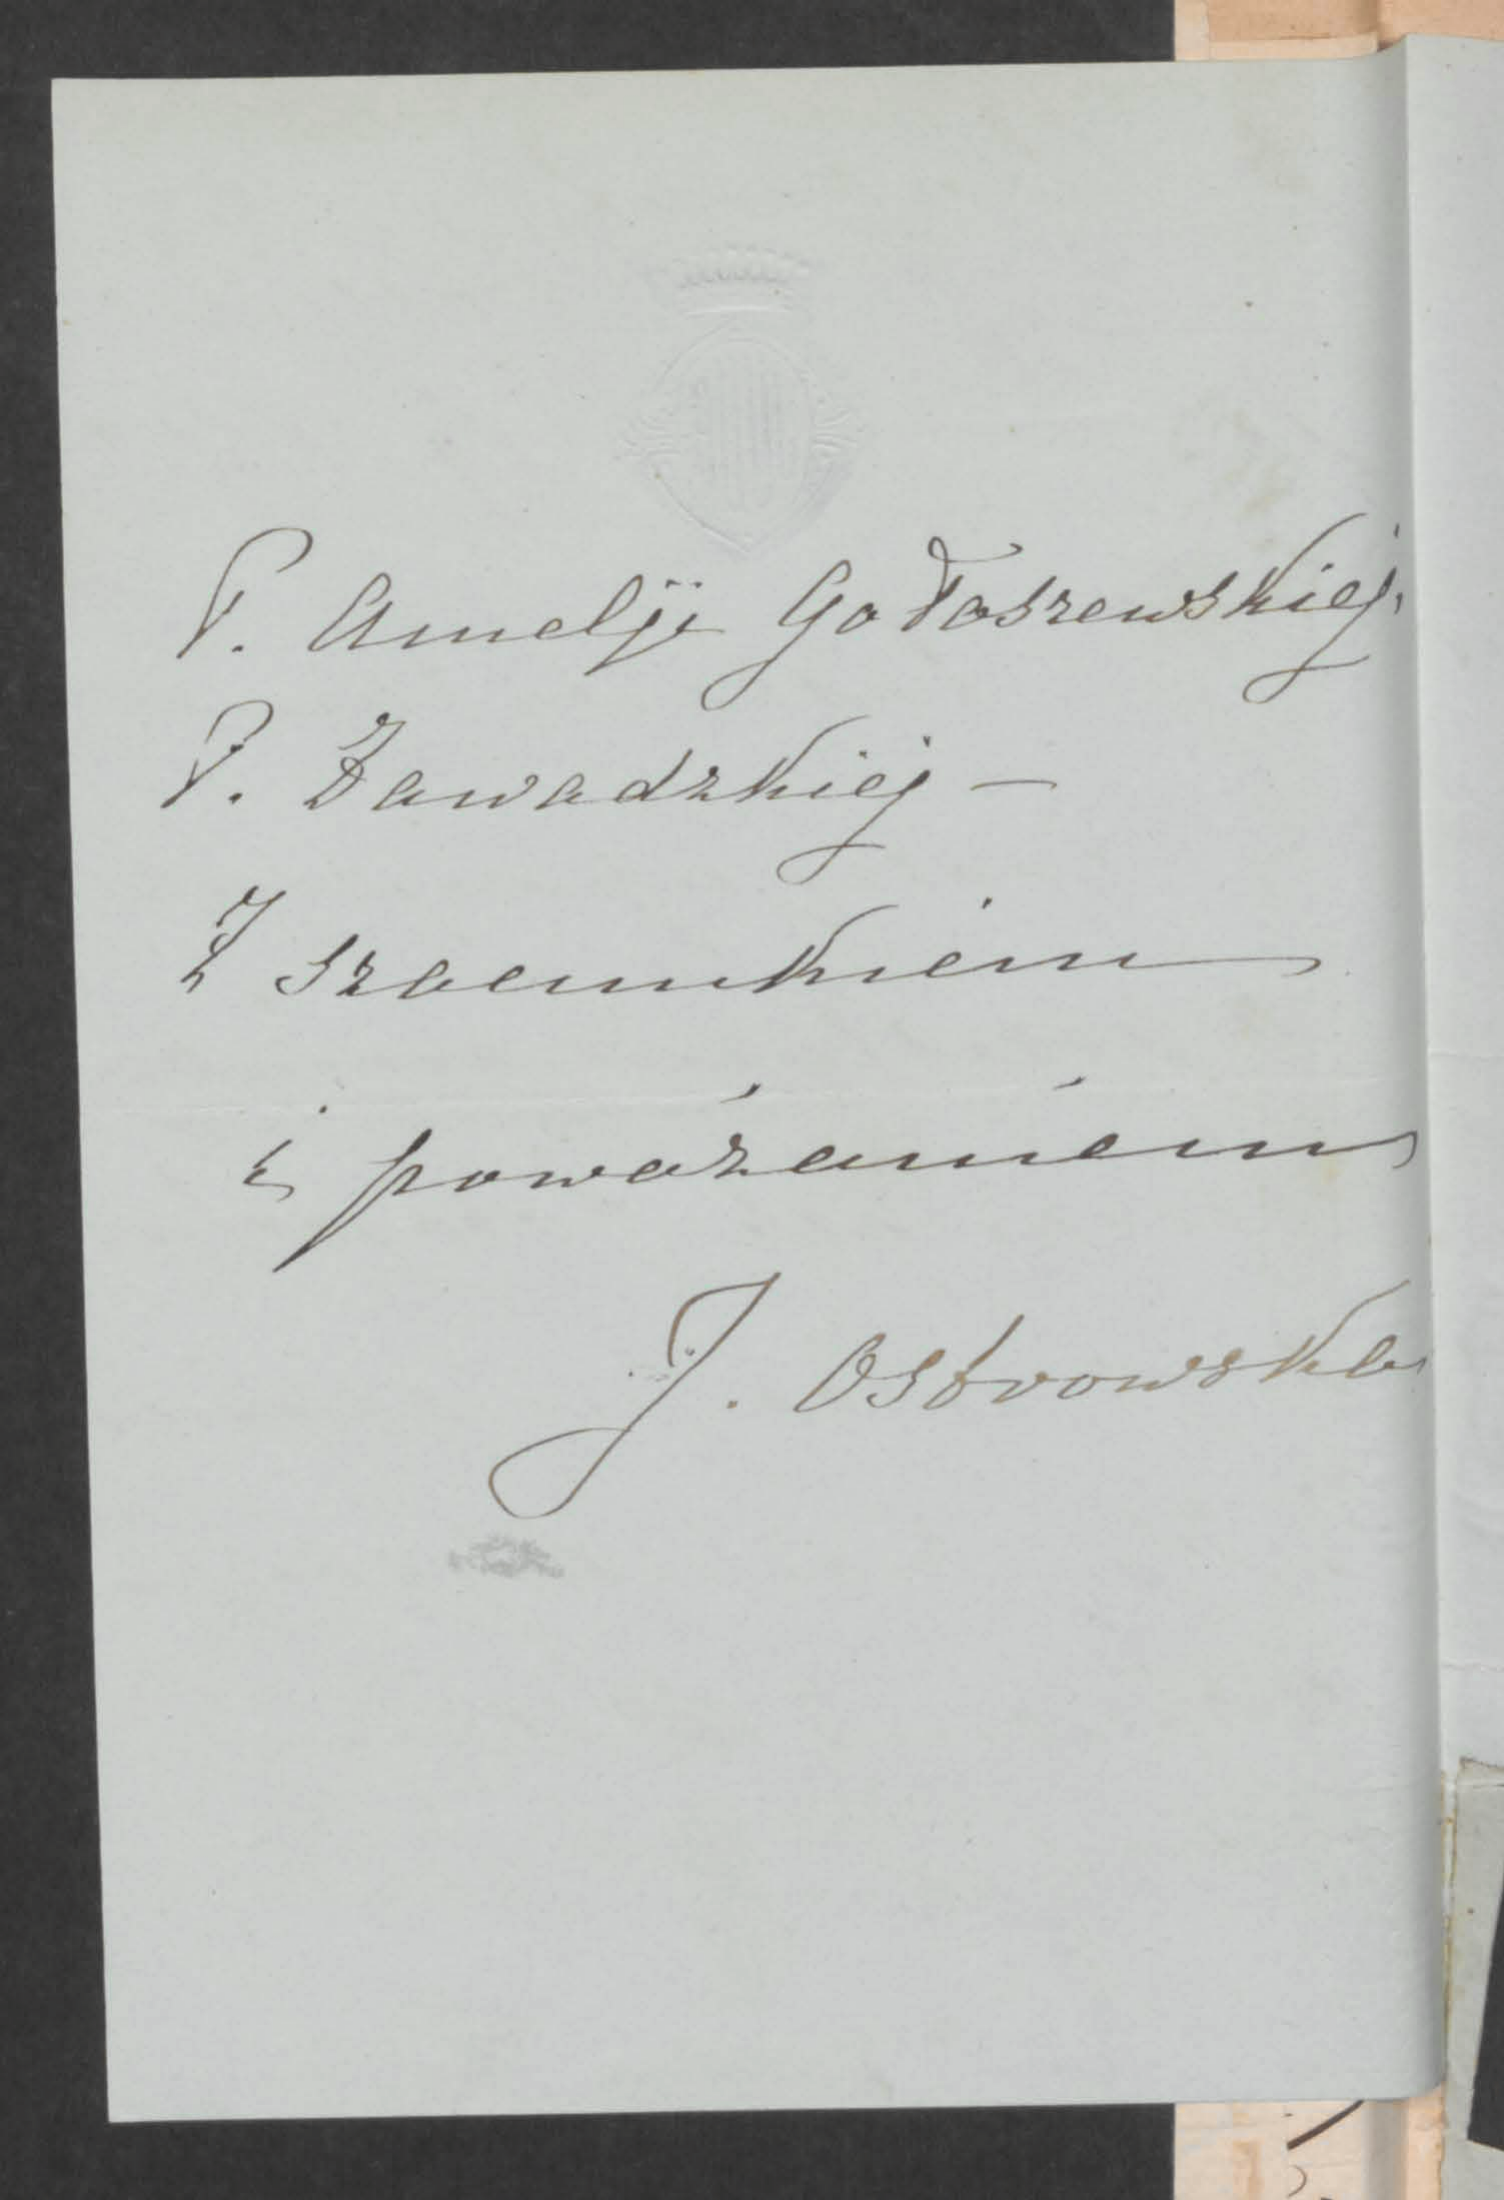 P. Amelji Gołaszewskiej,
P. Zawadzkiej —
Z szacunkiem
i poważaniem
J. Ostrowska